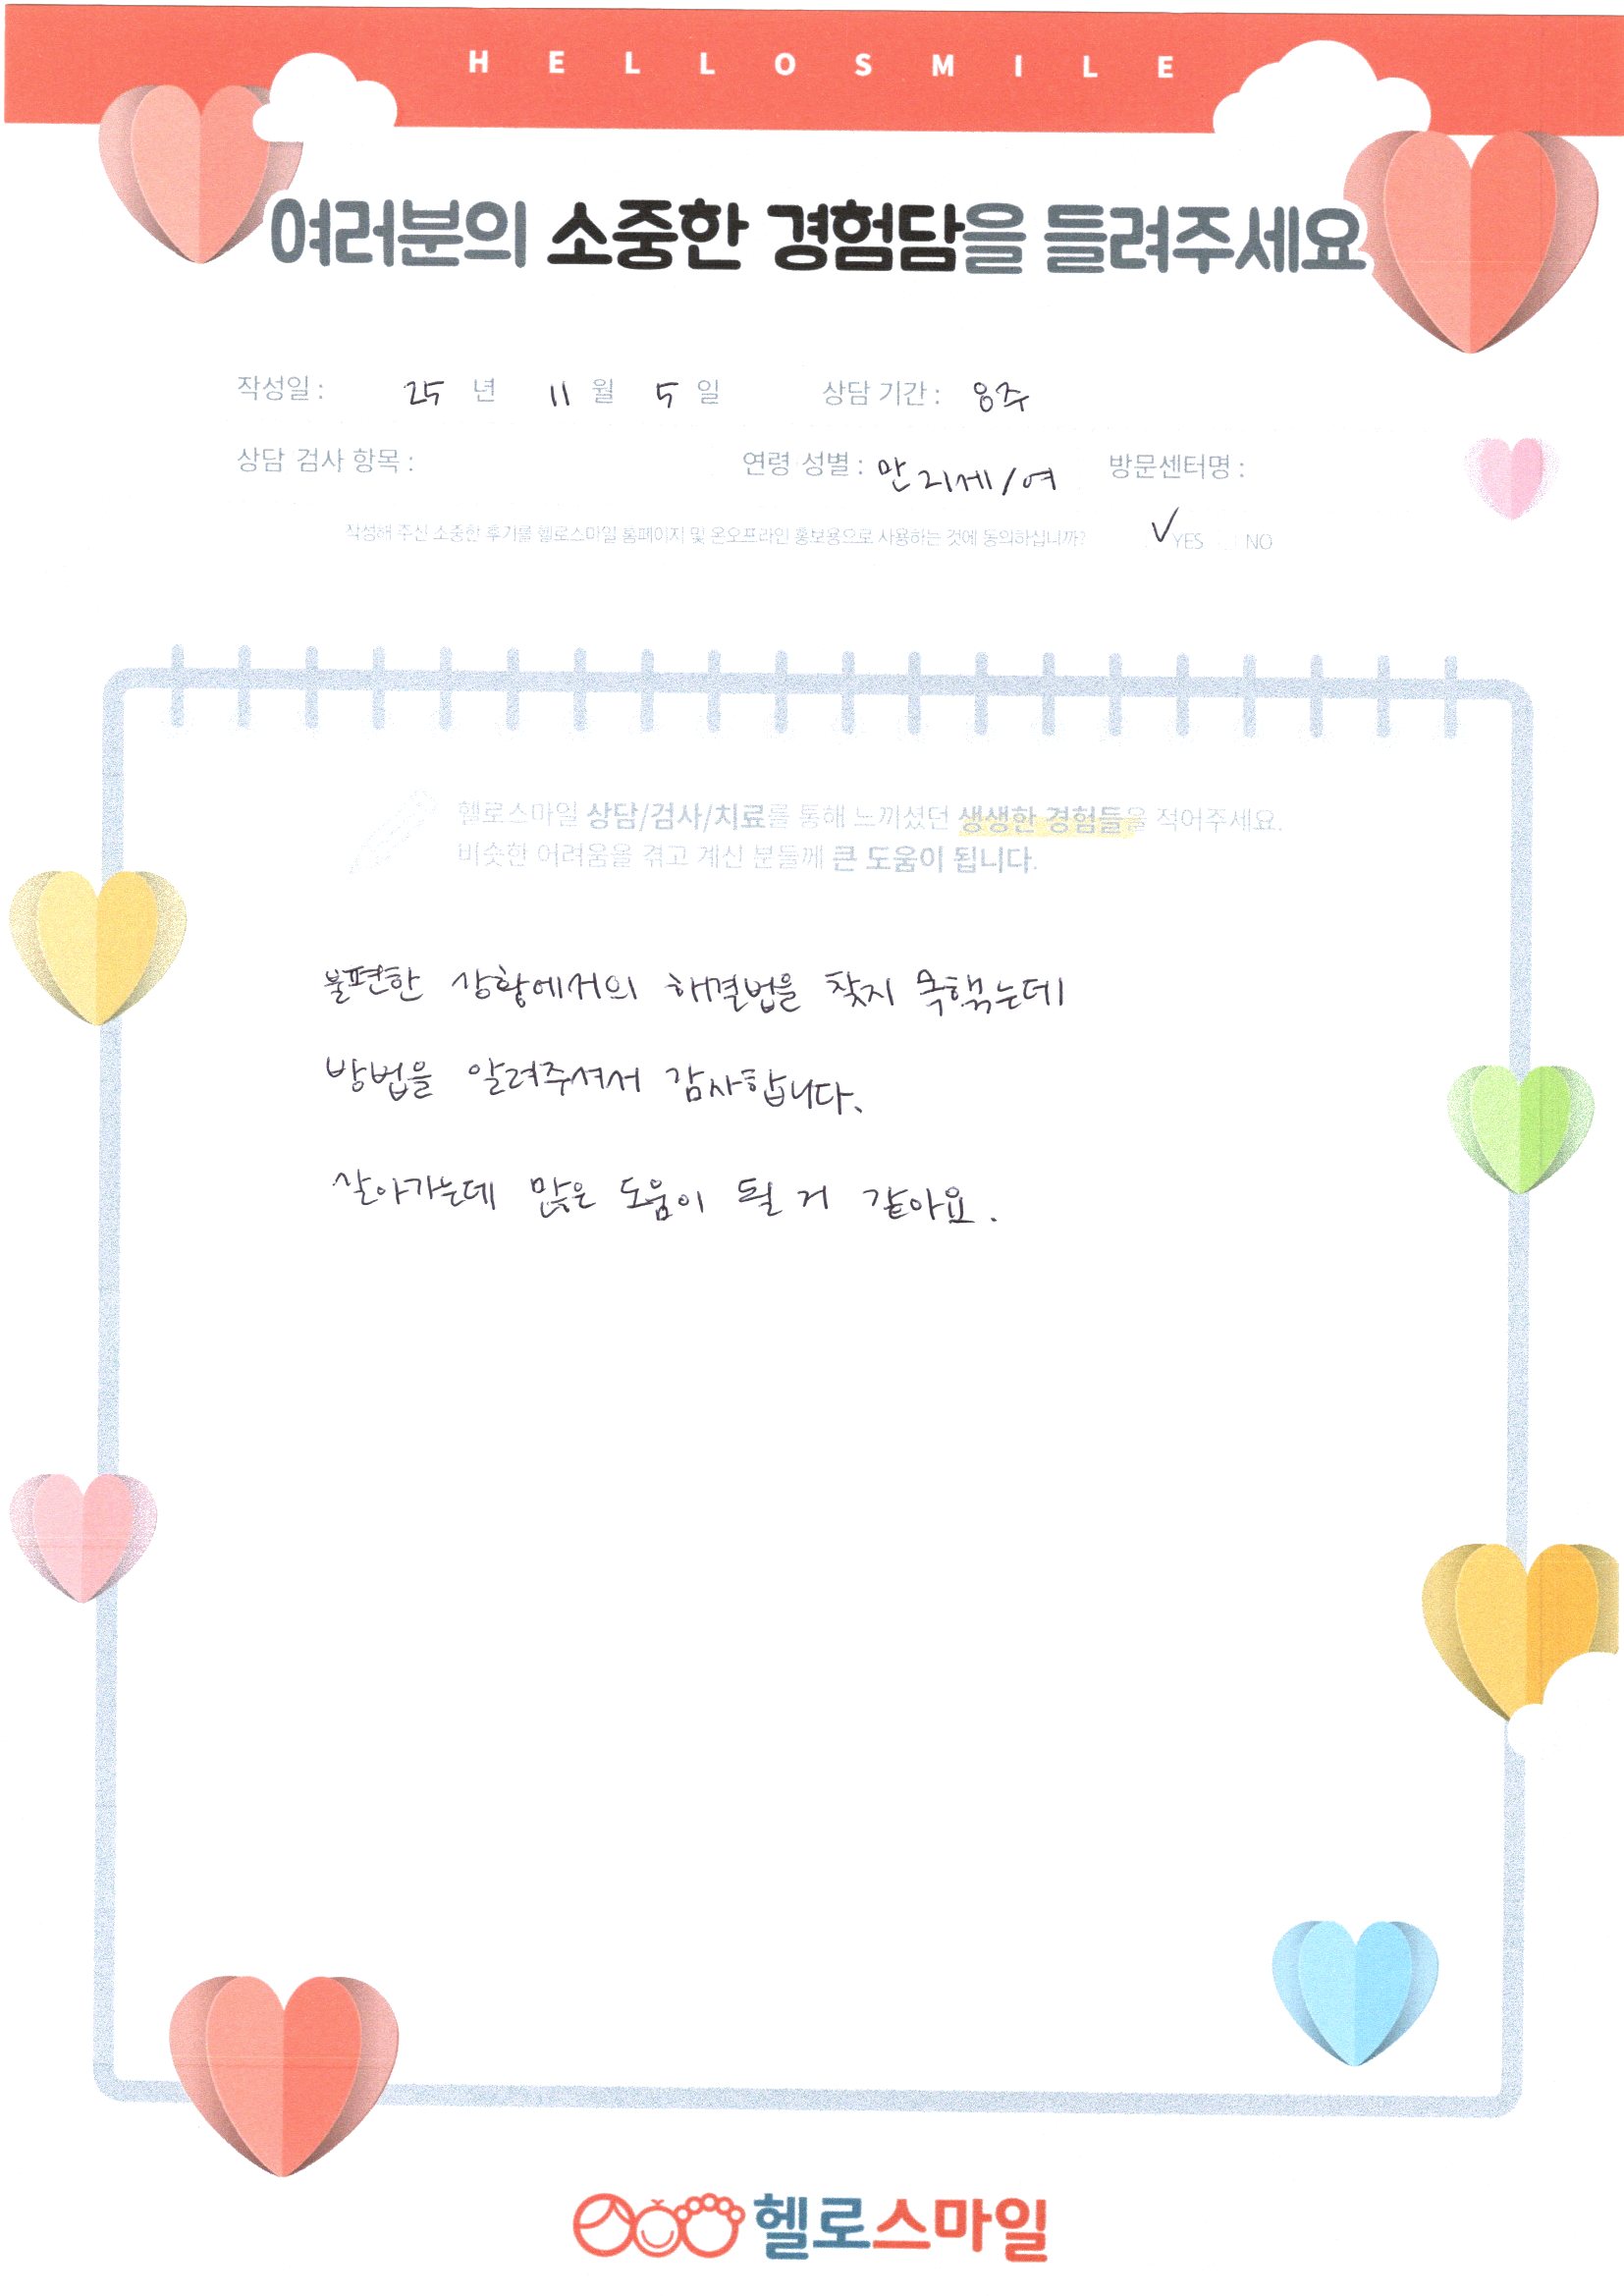 HELLOSMILE
여러분의 소중한 경험담을 들려주세요
작성일 : 25 년 11 월 5 일 상담 기간 : 8주
상담 검사 항목 : 연령 성별 : 만 21세/여 방문센터명 :
작성해 주신 소중한 후기를 헬로스마일 홈페이지 및 온오프라인 홍보용으로 사용하는 것에 동의하십니까? ✓YES NO
헬로스마일 상담/검사/치료를 통해 느끼셨던 생생한 경험들을 적어주세요.
비슷한 어려움을 겪고 계신 분들께 큰 도움이 됩니다.
불편한 상황에서의 해결법을 찾지 못했는데
방법을 알려주셔서 감사합니다.
살아가는데 많은 도움이 될 거 같아요.
헬로스마일